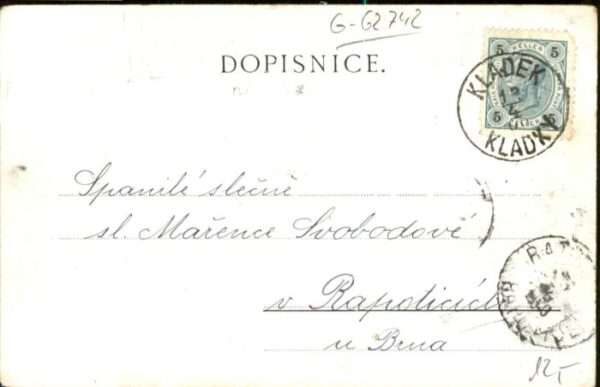 G-G2742
DOPISNICE.
5 HELLER 5
KLADEK
KLADKY
5 HELLER 5
Spanilé slečně
sl. Mařence Svobodové
v Rapoticích
u Brna
12,-